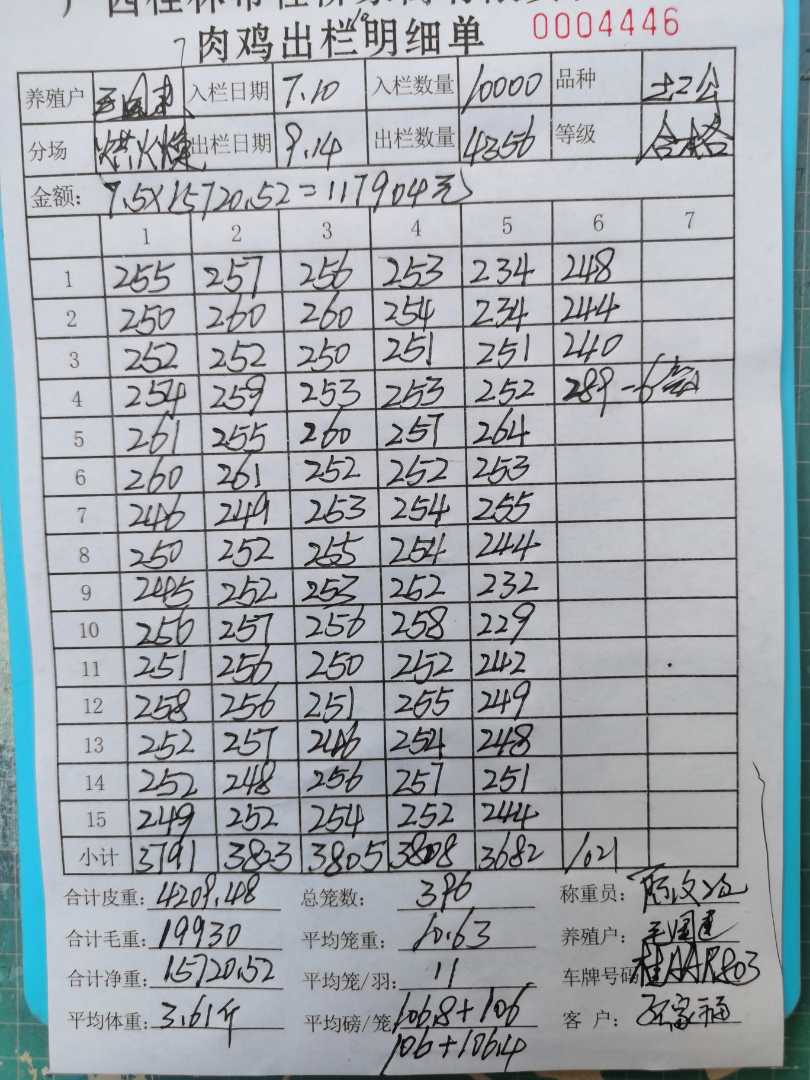 肉鸡出栏明细单 0004446
养殖户 王国建 入栏日期 7.10 入栏数量 10000 品种 土二公
分场 出栏日期 9.14 出栏数量 4356 等级 合格
金额: 7.5×15720.52=117904元
1 2 3 4 5 6 7
1 255 257 256 253 234 248
2 250 260 260 254 234 244
3 252 252 250 251 251 240
4 254 259 253 253 252 289 -6
5 261 255 260 257 264
6 260 261 252 252 253
7 246 249 253 254 255
8 250 252 255 254 244
9 245 252 253 252 232
10 256 257 256 258 229
11 251 256 250 252 242
12 258 256 251 255 249
13 252 257 246 254 248
14 252 248 256 257 251
15 249 252 254 252 244
小计 3791 3823 3805 3808 3682 1021
合计皮重: 4209.48 总笼数: 396 称重员:
合计毛重: 19930 平均笼重: 10.63 养殖户: 王国建
合计净重: 15720.52 平均笼/羽: 11 车牌号码
平均体重: 3.61斤 平均磅/笼 106.8+106 客 户:
106+106.4